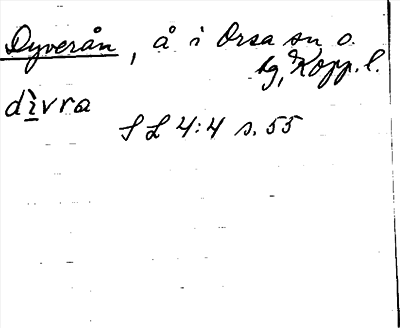 Dyverån, å i Orsa sn o.
tg, Kopp. l.
dìvra
SL 4:4 s. 55